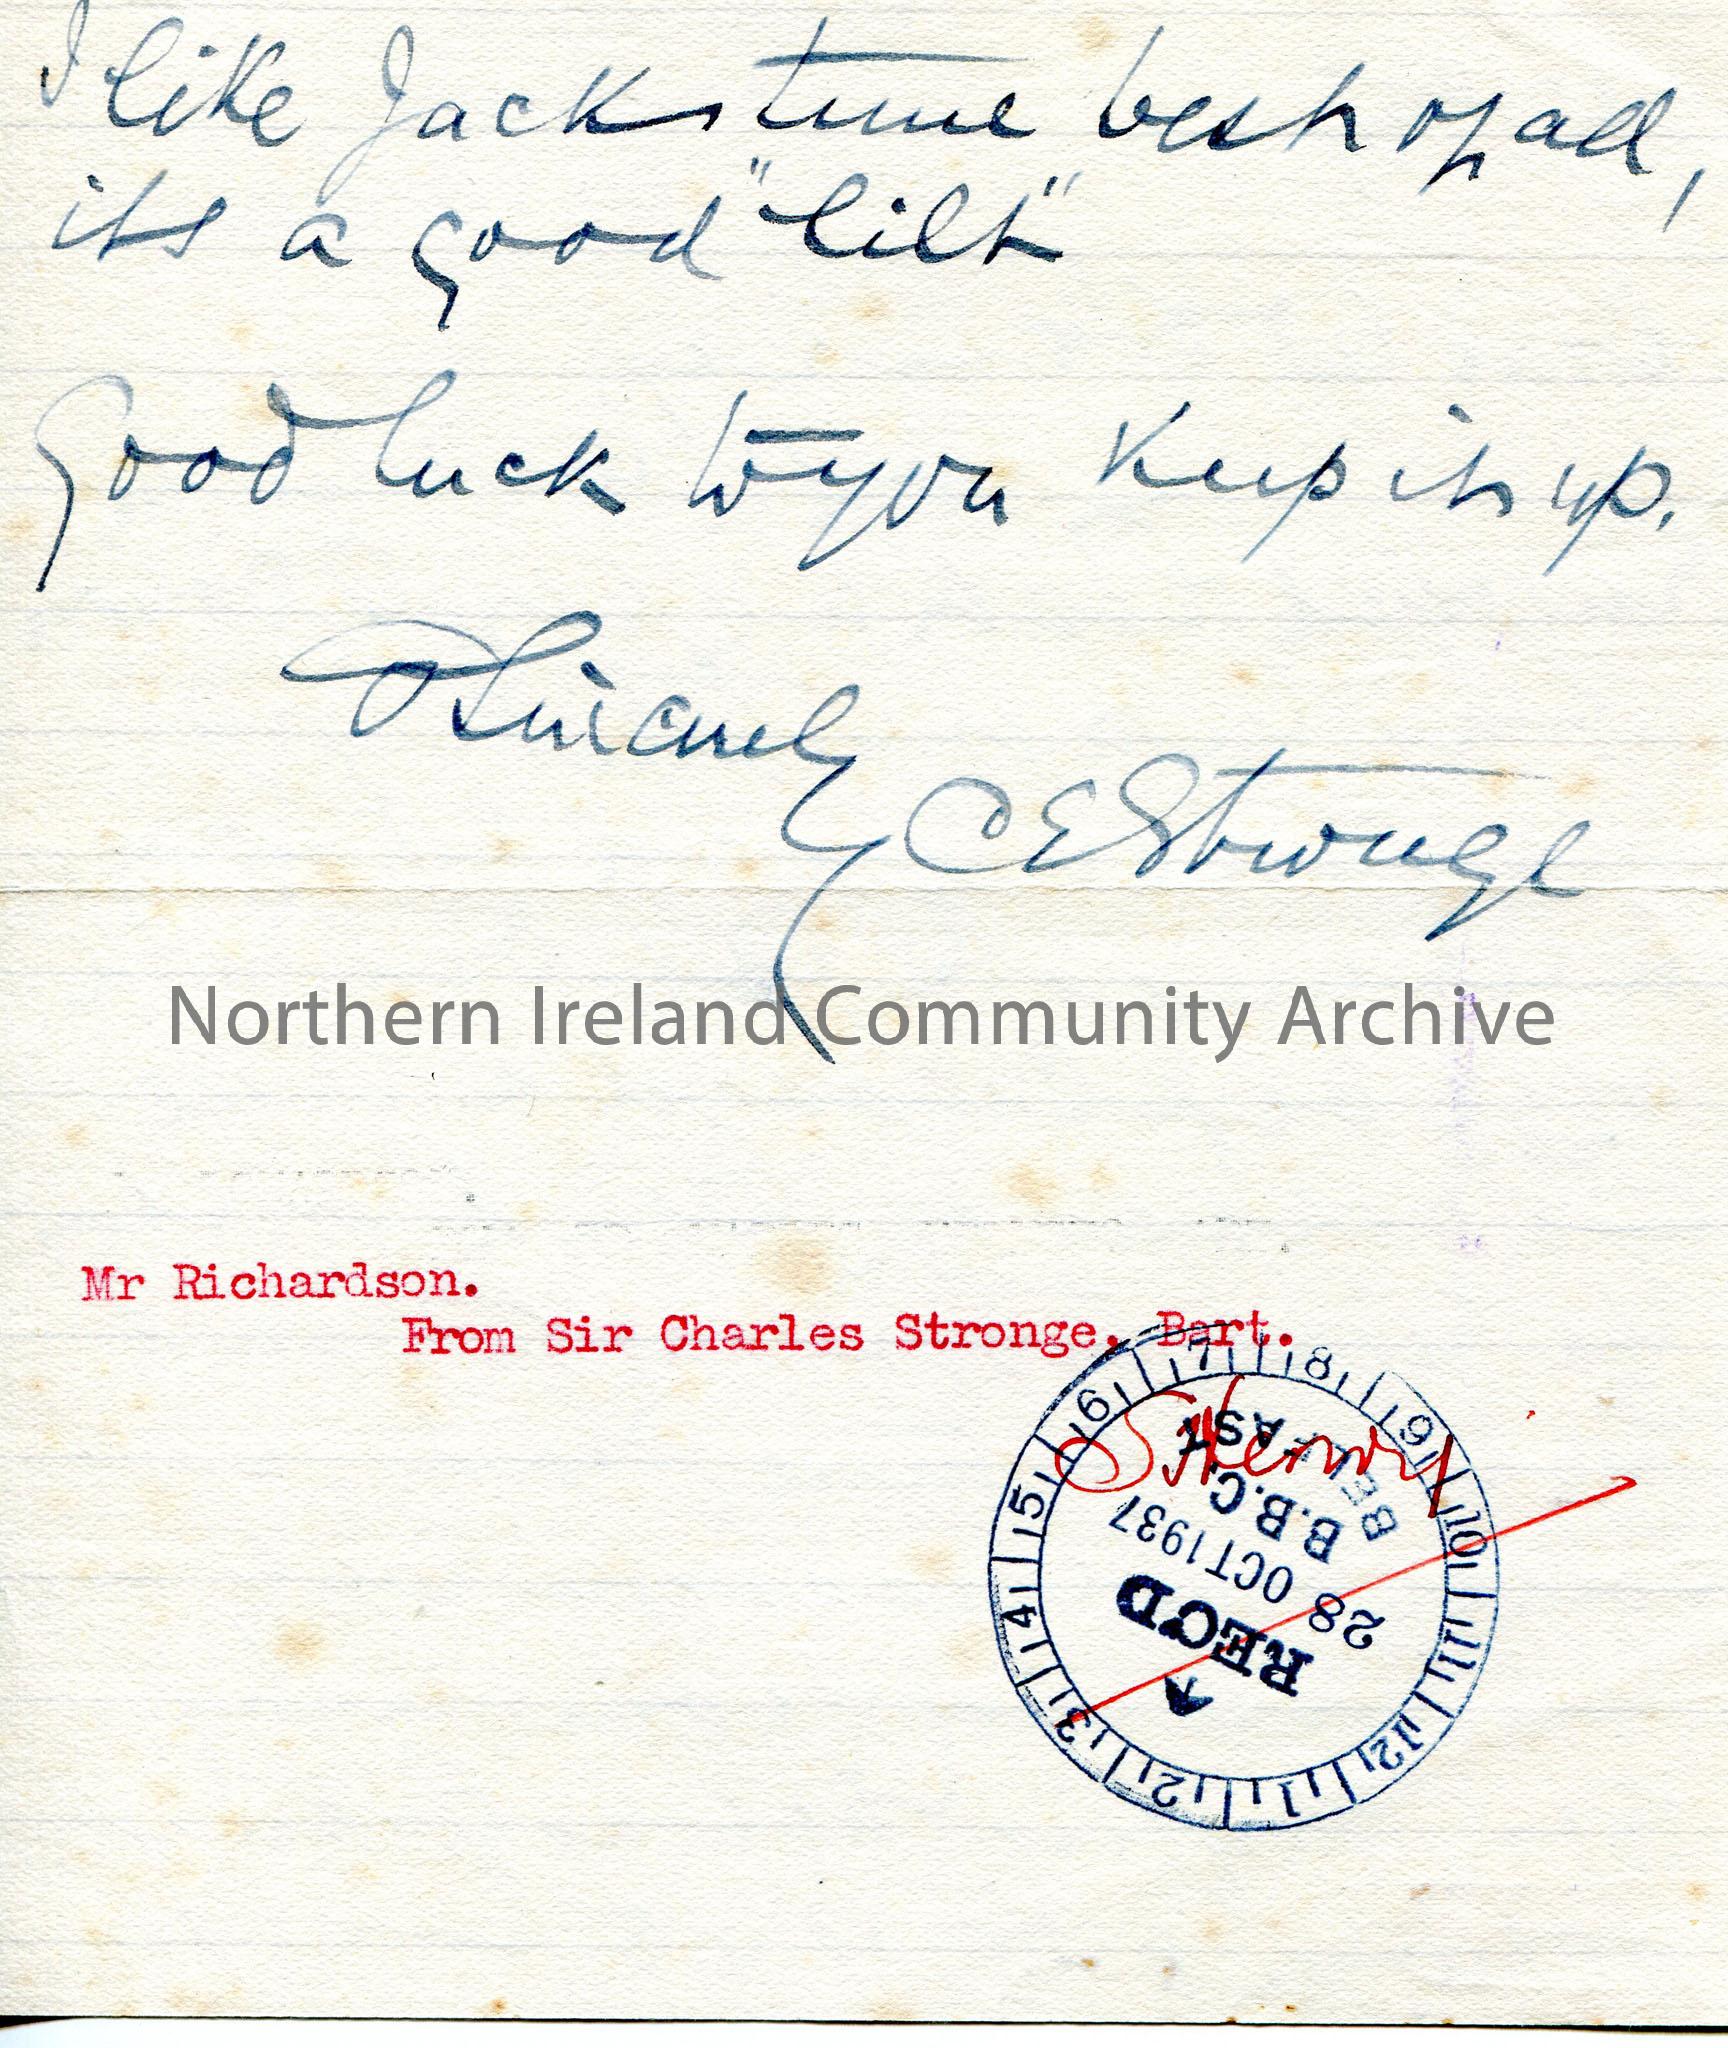 I like Jacks tune best of all,
its a good "lilt"
Good luck to you keep it up.
Sincerely
CEStronge
Northern Ireland Community Archive
Mr Richardson.
From Sir Charles Stronge, Bart.
REC'D
28 OCT 1937
B.B.C.
BELFAST
6 7 8 9 10 11 12 1 2 3 4 5